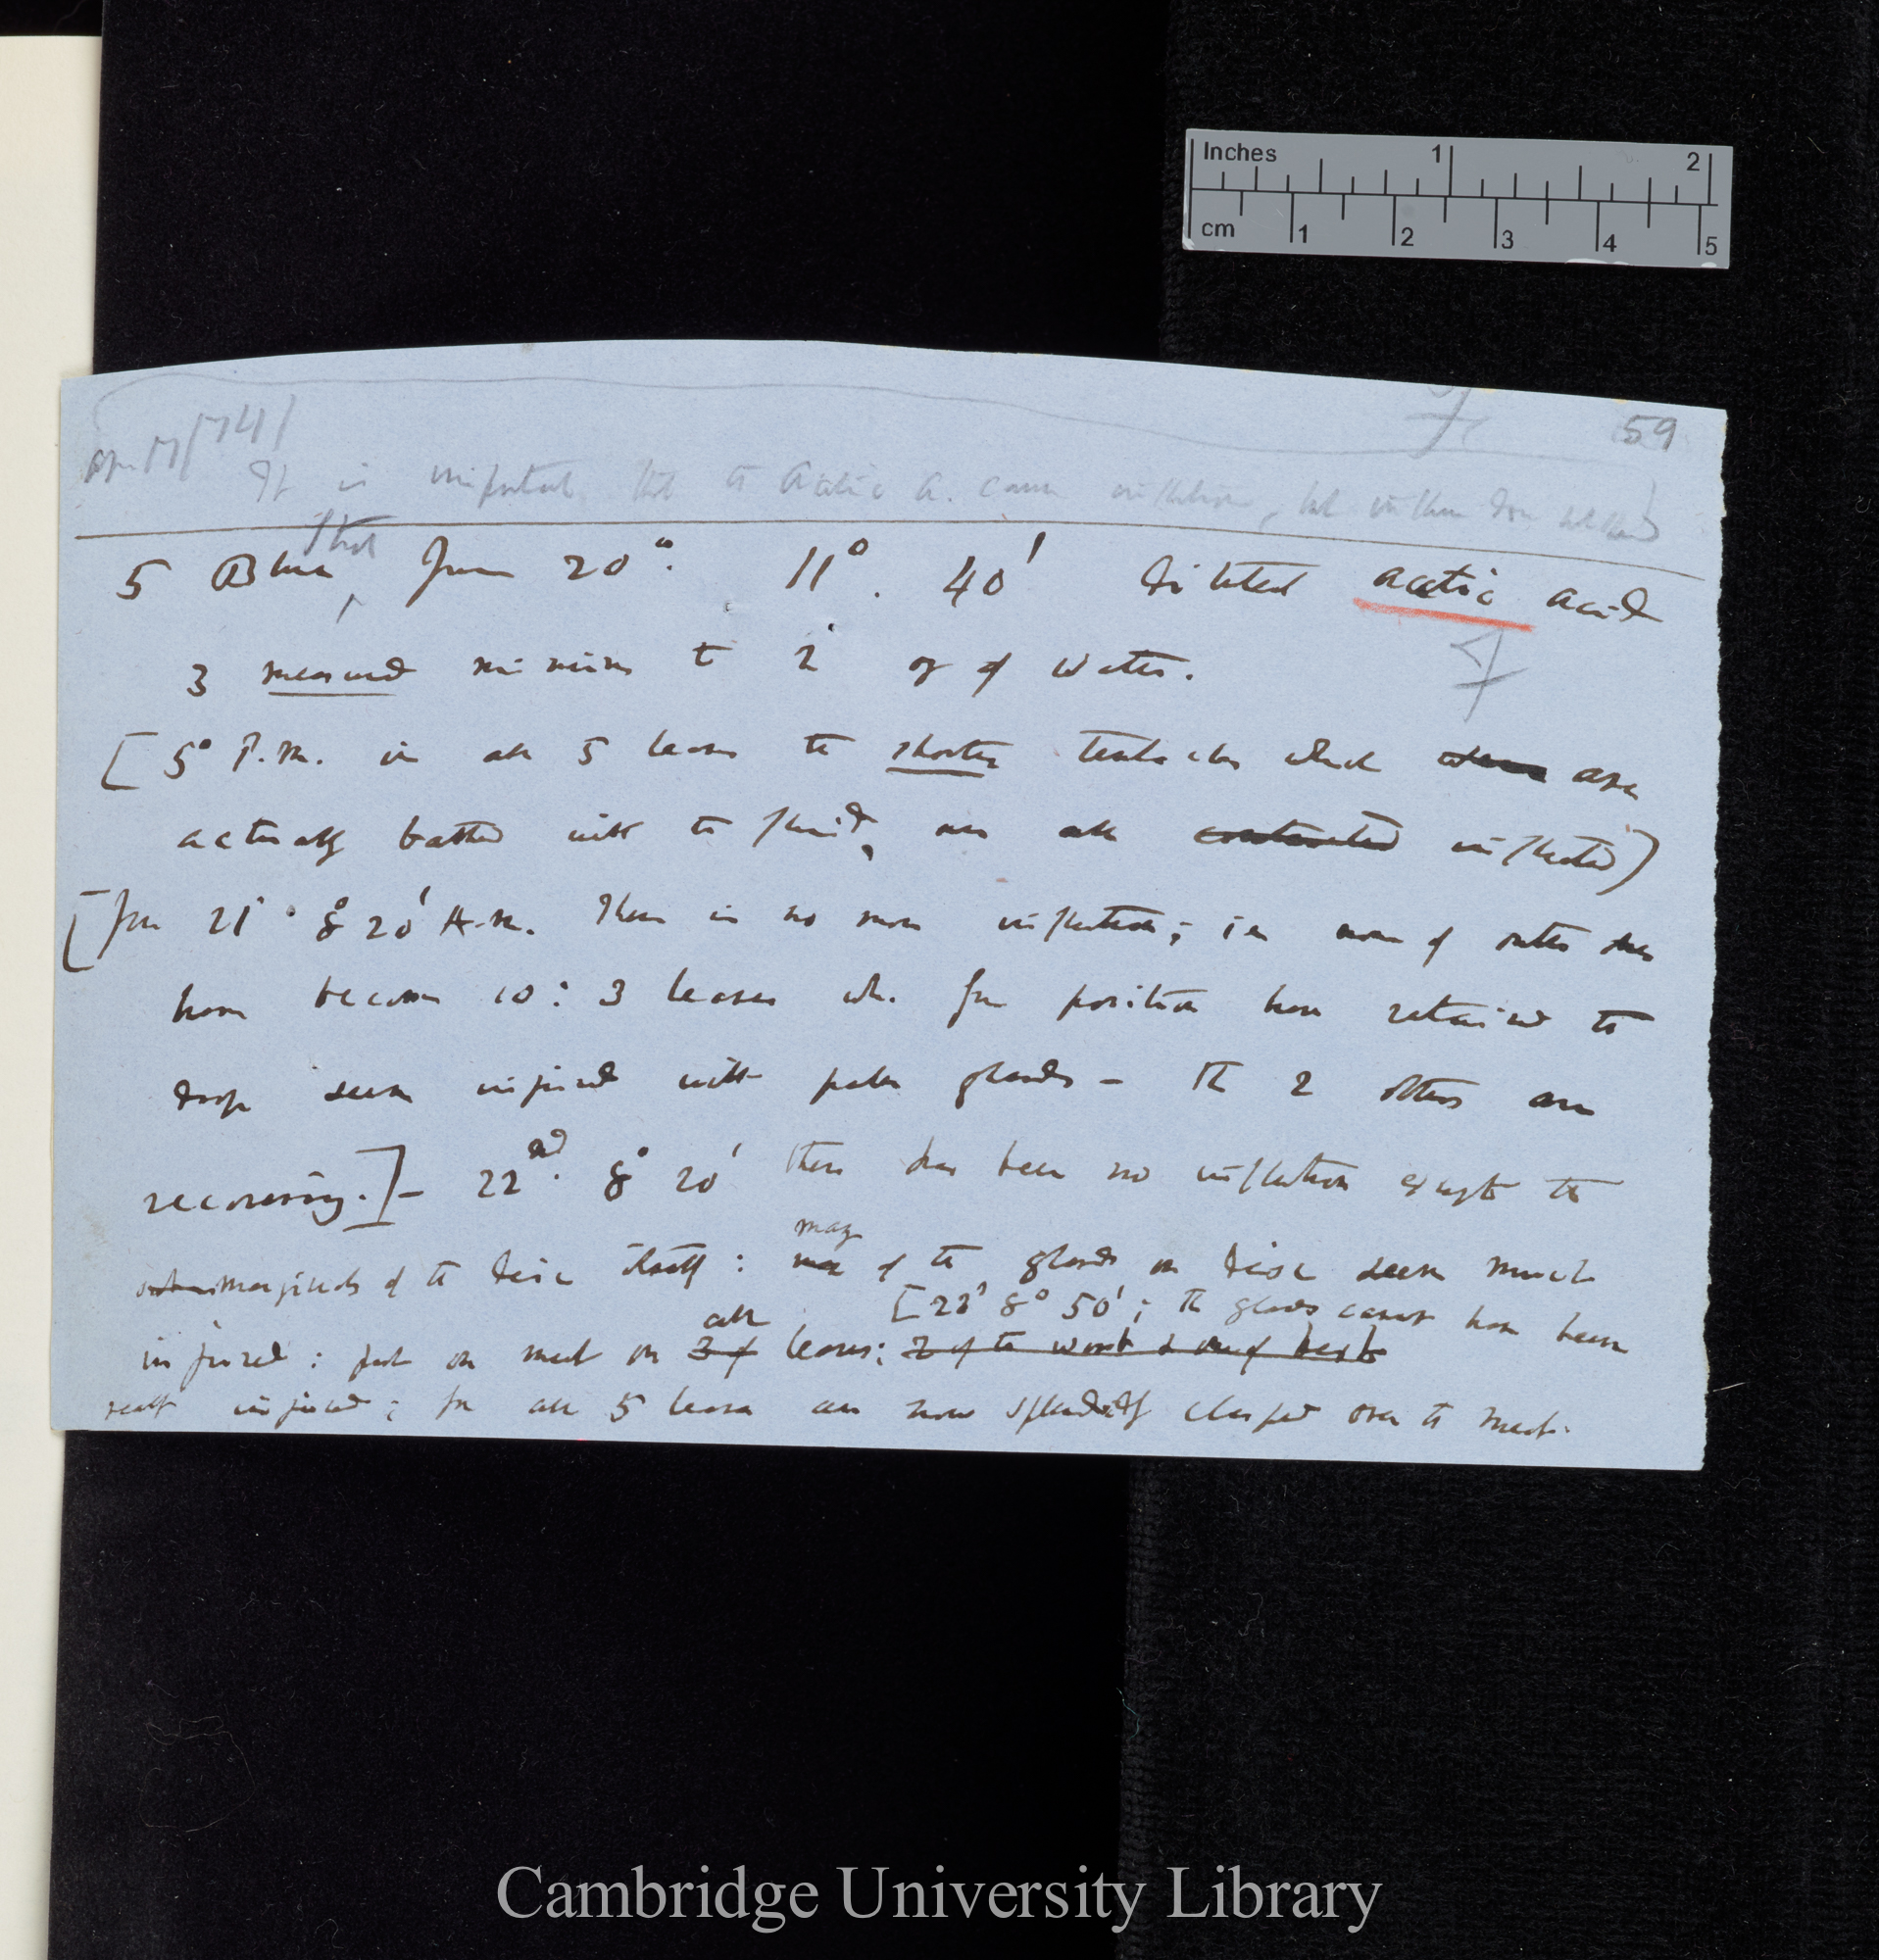 Inches 1 2
cm 1 2 3 4 5
59
It is important that the acetic a. causes inflection, but
5 June 20°. 11°. 40' diluted acetic acid
3 measured minims to 1 oz of water.
[5° P.M. in all 5 leaves the shorter tentacles which are
actually bathed with the fluid, are all contracted inflected)
[June 21° 8° 20' A.M. There is no more inflection; ie none of outer
have become so: 3 leaves wh. from position have retained the
drop seem injured with paler glands — The 2 others are
recovering.] — 22nd. 8° 20' there has been no inflection except the
marginals of the disc itself: many of the glands on disc seem much
[22° 8° 50'; The glands cannot have been
injured: put on meat on 3 of all leaves; 2 of the worst & one of best
really injured; for all 5 leaves are now splendidly clasped over the meat.
Cambridge University Library